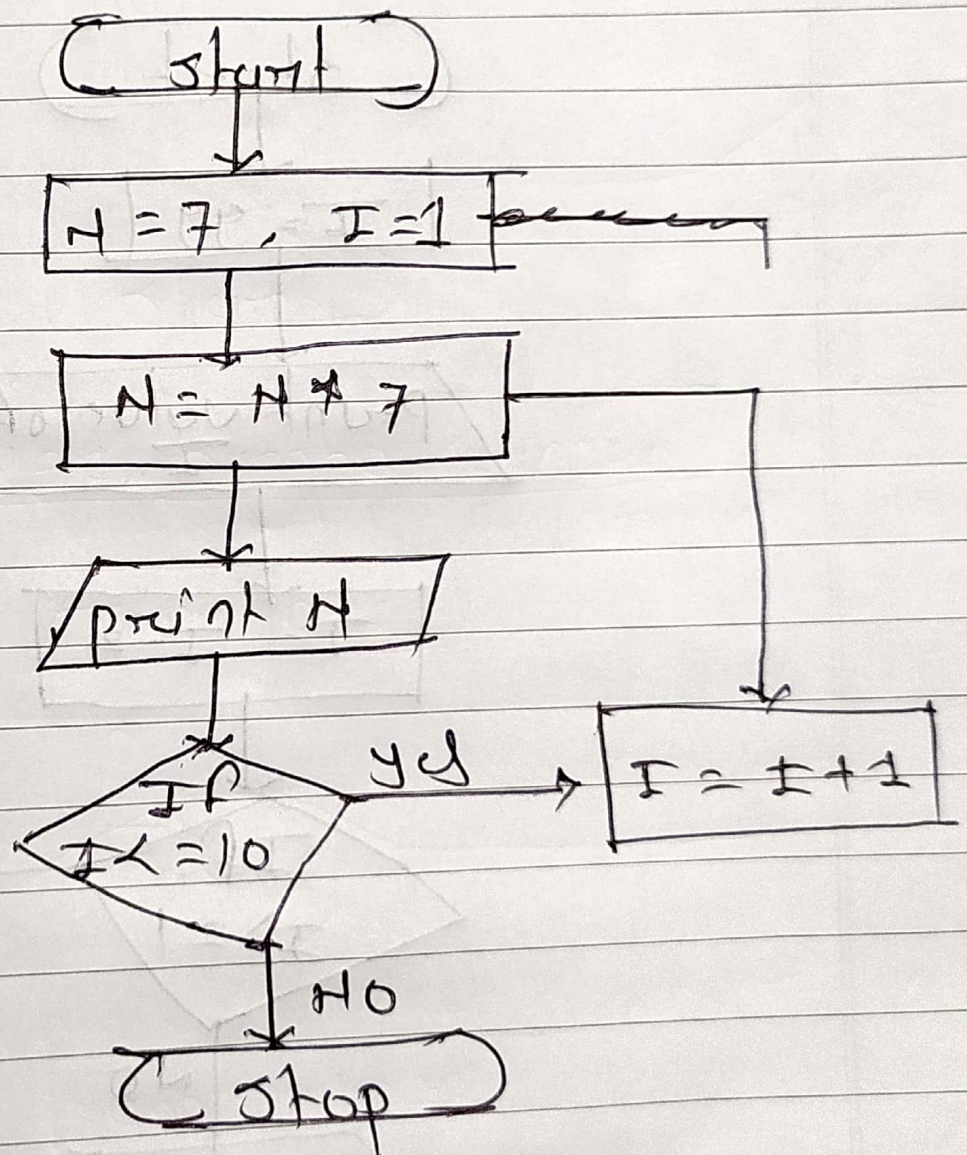 Start
N = 7, I = 1
N = N * 7
print N
If
I < = 10
yes
I = I + 1
NO
Stop